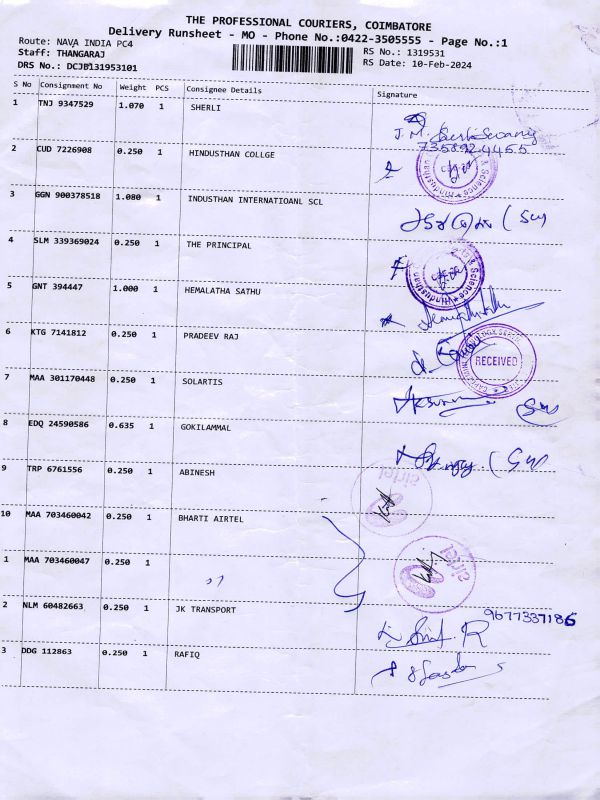 THE PROFESSIONAL COURIERS, COIMBATORE
Delivery Runsheet - MO - Phone No.:0422-3505555 - Page No.:1
Route: NAVA INDIA PC4
RS No.: 1319531
Staff: THANGARAJ
RS Date: 10-Feb-2024
DRS No.: DCJB131953101
S No Consignment No Weight PCS Consignee Details Signature
1 TNJ 9347529 1.070 1 SHERLI
J.M.
7358924455
2 CUD 7226908 0.250 1 HINDUSTHAN COLLGE
& Science * Hindusthan
3 GGN 900378518 1.080 1 INDUSTHAN INTERNATIOANL SCL
4 SLM 339369024 0.250 1 THE PRINCIPAL
& Science * Hindusthan
5 GNT 394447 1.000 1 HEMALATHA SATHU
6 KTG 7141812 0.250 1 PRADEEV RAJ
RECEIVED
7 MAA 301170448 0.250 1 SOLARTIS
8 EDQ 24590586 0.635 1 GOKILAMMAL
9 TRP 6761556 0.250 1 ABINESH
airtel
10 MAA 703460042 0.250 1 BHARTI AIRTEL
1 MAA 703460047 0.250 1
airtel
2 NLM 60482663 0.250 1 JK TRANSPORT
9677337186
3 DDG 112863 0.250 1 RAFIQ